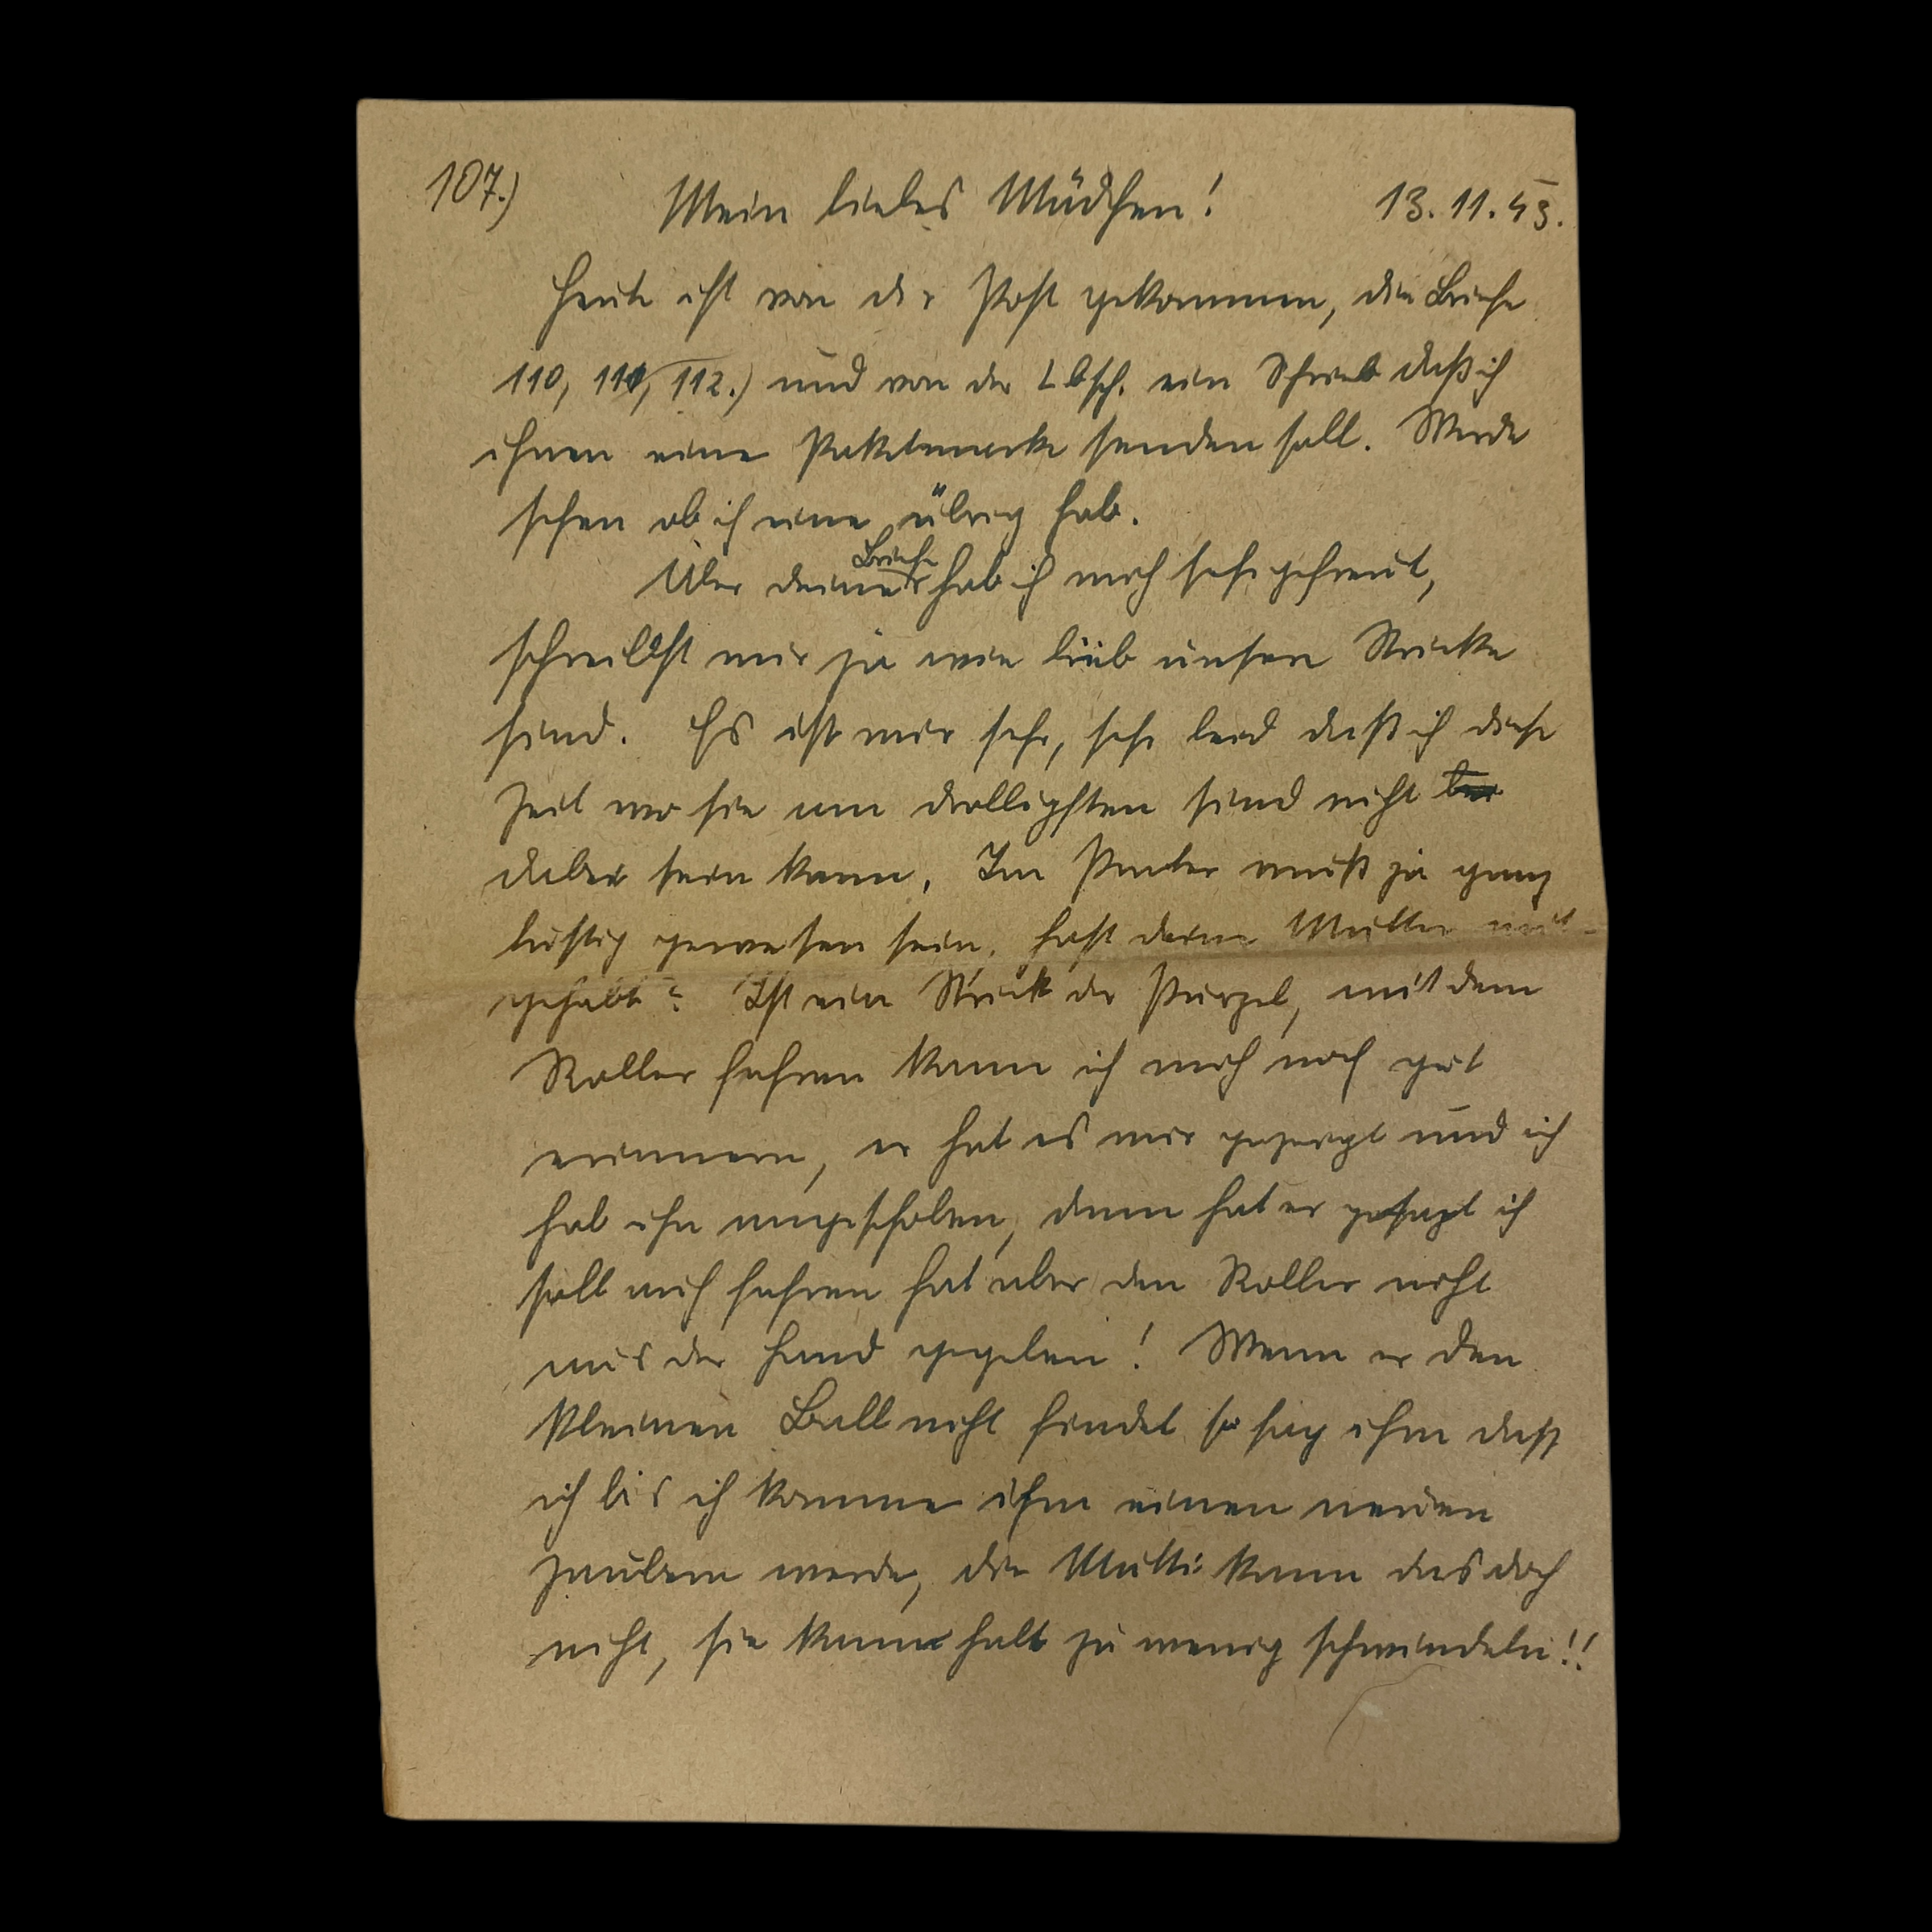 107.) Mein liebes Mädchen! 13.11.43.
Heute ist von dir Post gekommen, die Briefe
110, 111, 112.) und von der Lbsch. ein Schrieb daß ich
ihnen eine Paketmarke senden soll. Werde
sehen ob ich eine übrig hab.
Briefe
Über deine hab ich mich sehr gefreut,
schreibst mir ja wie lieb unsere Stricke
sind. Es ist mir sehr, sehr leid daß ich diese
Zeit wo sie am drolligsten sind nicht
dabei sein kann. Im Prater muß ja ganz
lustig gewesen sein, hast deine Mutter mit-
gehabt? Ist ein Strick der Purzel, mit dem
Roller fahren kann ich mich noch gut
erinnern, er hat es mir gezeigt und ich
hab ihn angeschoben, dann hat er gesagt ich
soll auch fahren hat aber den Roller nicht
aus der Hand gegeben! Wenn er den
kleinen Ball nicht findet so sag ihm dass
ich bis ich komme ihm einen neuen
zaubern werde, die Mutti kann das doch
nicht, sie kann halt zu wenig schwindeln!!